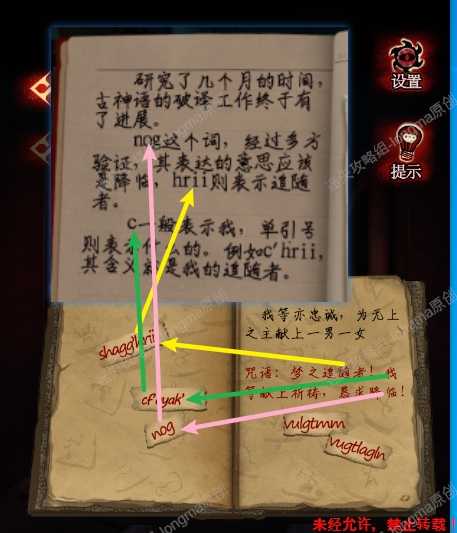 研究了几个月的时间,
古神语的破译工作终于有
了进展。
nog这个词, 经过多方
验证, 其表达的意思应该
是降临, hrii则表示追随
者。
c一般表示我, 单引号
则表示什么的。例如c'hrii,
其含义就是我的追随者。
设置
提示
我等亦忠诚, 为无上
之主献上一男一女
咒语: 梦之追随者! 我
等献上祈祷, 恳求降临!
shagg'hrii
nog
vulgtmm
vugtlagln
未经允许, 禁止转载!